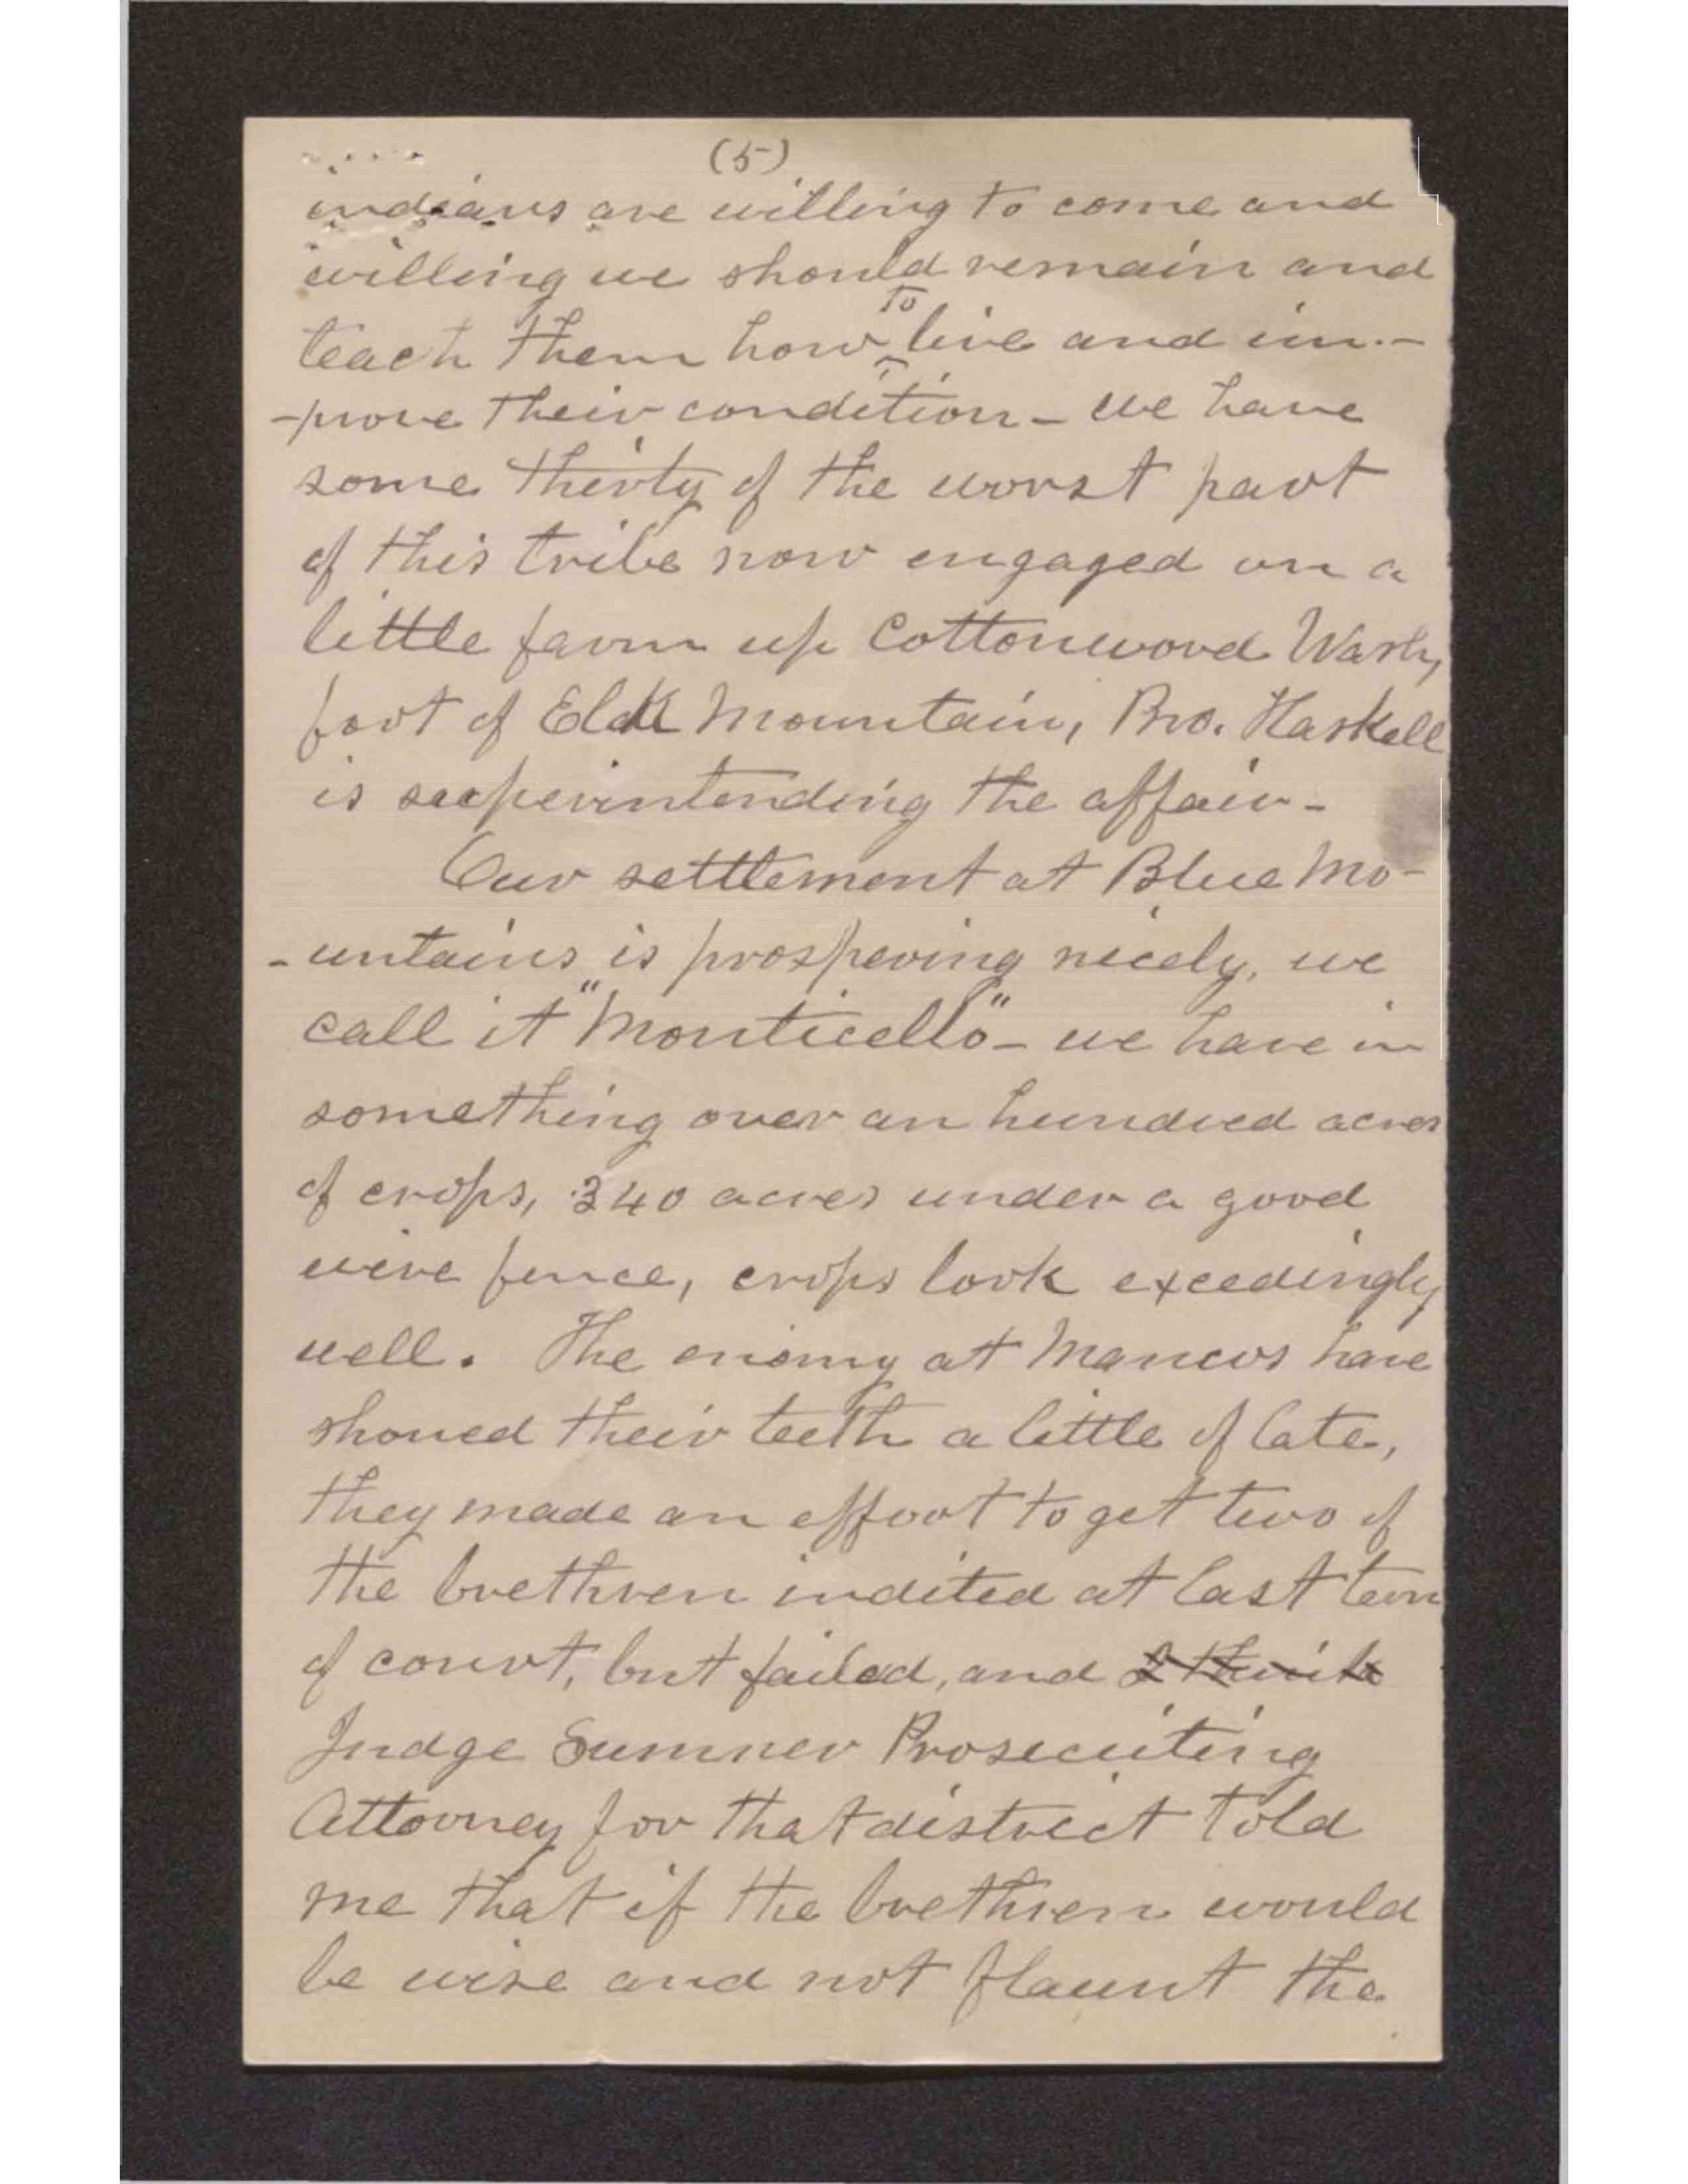 (5)
indians are willing to come and
willing we should remain and
to
teach them how live and im-
-prove their condition - we have
some thirty of the worst part
of this tribe now engaged on a
little farm up Cottonwood Wash,
foot of Elk Mountain, Bro. Haskell
is superintending the affair -
Our settlement at Blue Mo-
-untains is prospering nicely, we
call it "Monticello" - we have in
something over an hundred acres
of crops, 340 acres under a good
wire fence, crops look exceedingly
well. The enemy at Mancos have
showed their teeth a little of late,
they made an effort to get two of
the brethren indited at last term
of court, but failed, and I think
Judge Sumner Prosecuting
Attorney for that district told
me that if the brethren would
be wise and not flaunt the